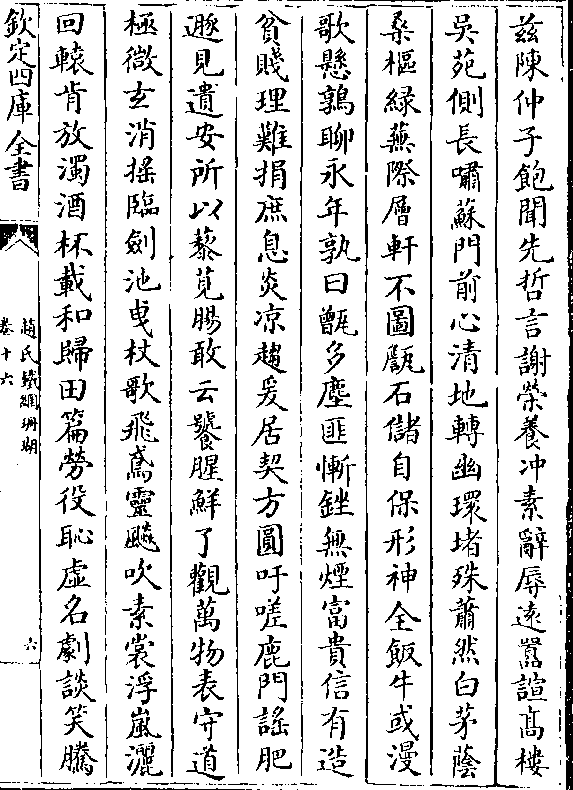 茲陳仲子飽聞先哲言謝榮養冲素辭辱遠囂諠髙棲
吳苑側長嘯蘇門前心清地轉幽環堵殊蕭然白茅蔭
桑樞緑蕪際層軒不圖甔石儲自保形神全飯牛或漫
歌懸鶉聊永年孰曰甑多塵匪慚銼無煙富貴信有造
貧賤理難捐庶息炎凉趨爰居契方圓吁嗟鹿門謡肥
遯見遺安所以藜莧腸敢云饕腥鮮了觀萬物表守道
極微玄消揺臨劍池曵杖歌飛鳶靈飇吹素裳浮嵐灑
回轅肯放濁酒杯載和歸田篇勞役恥虚名劇談笑騰
欽定四庫全書
趙氏鐵網珊瑚
卷十六
六